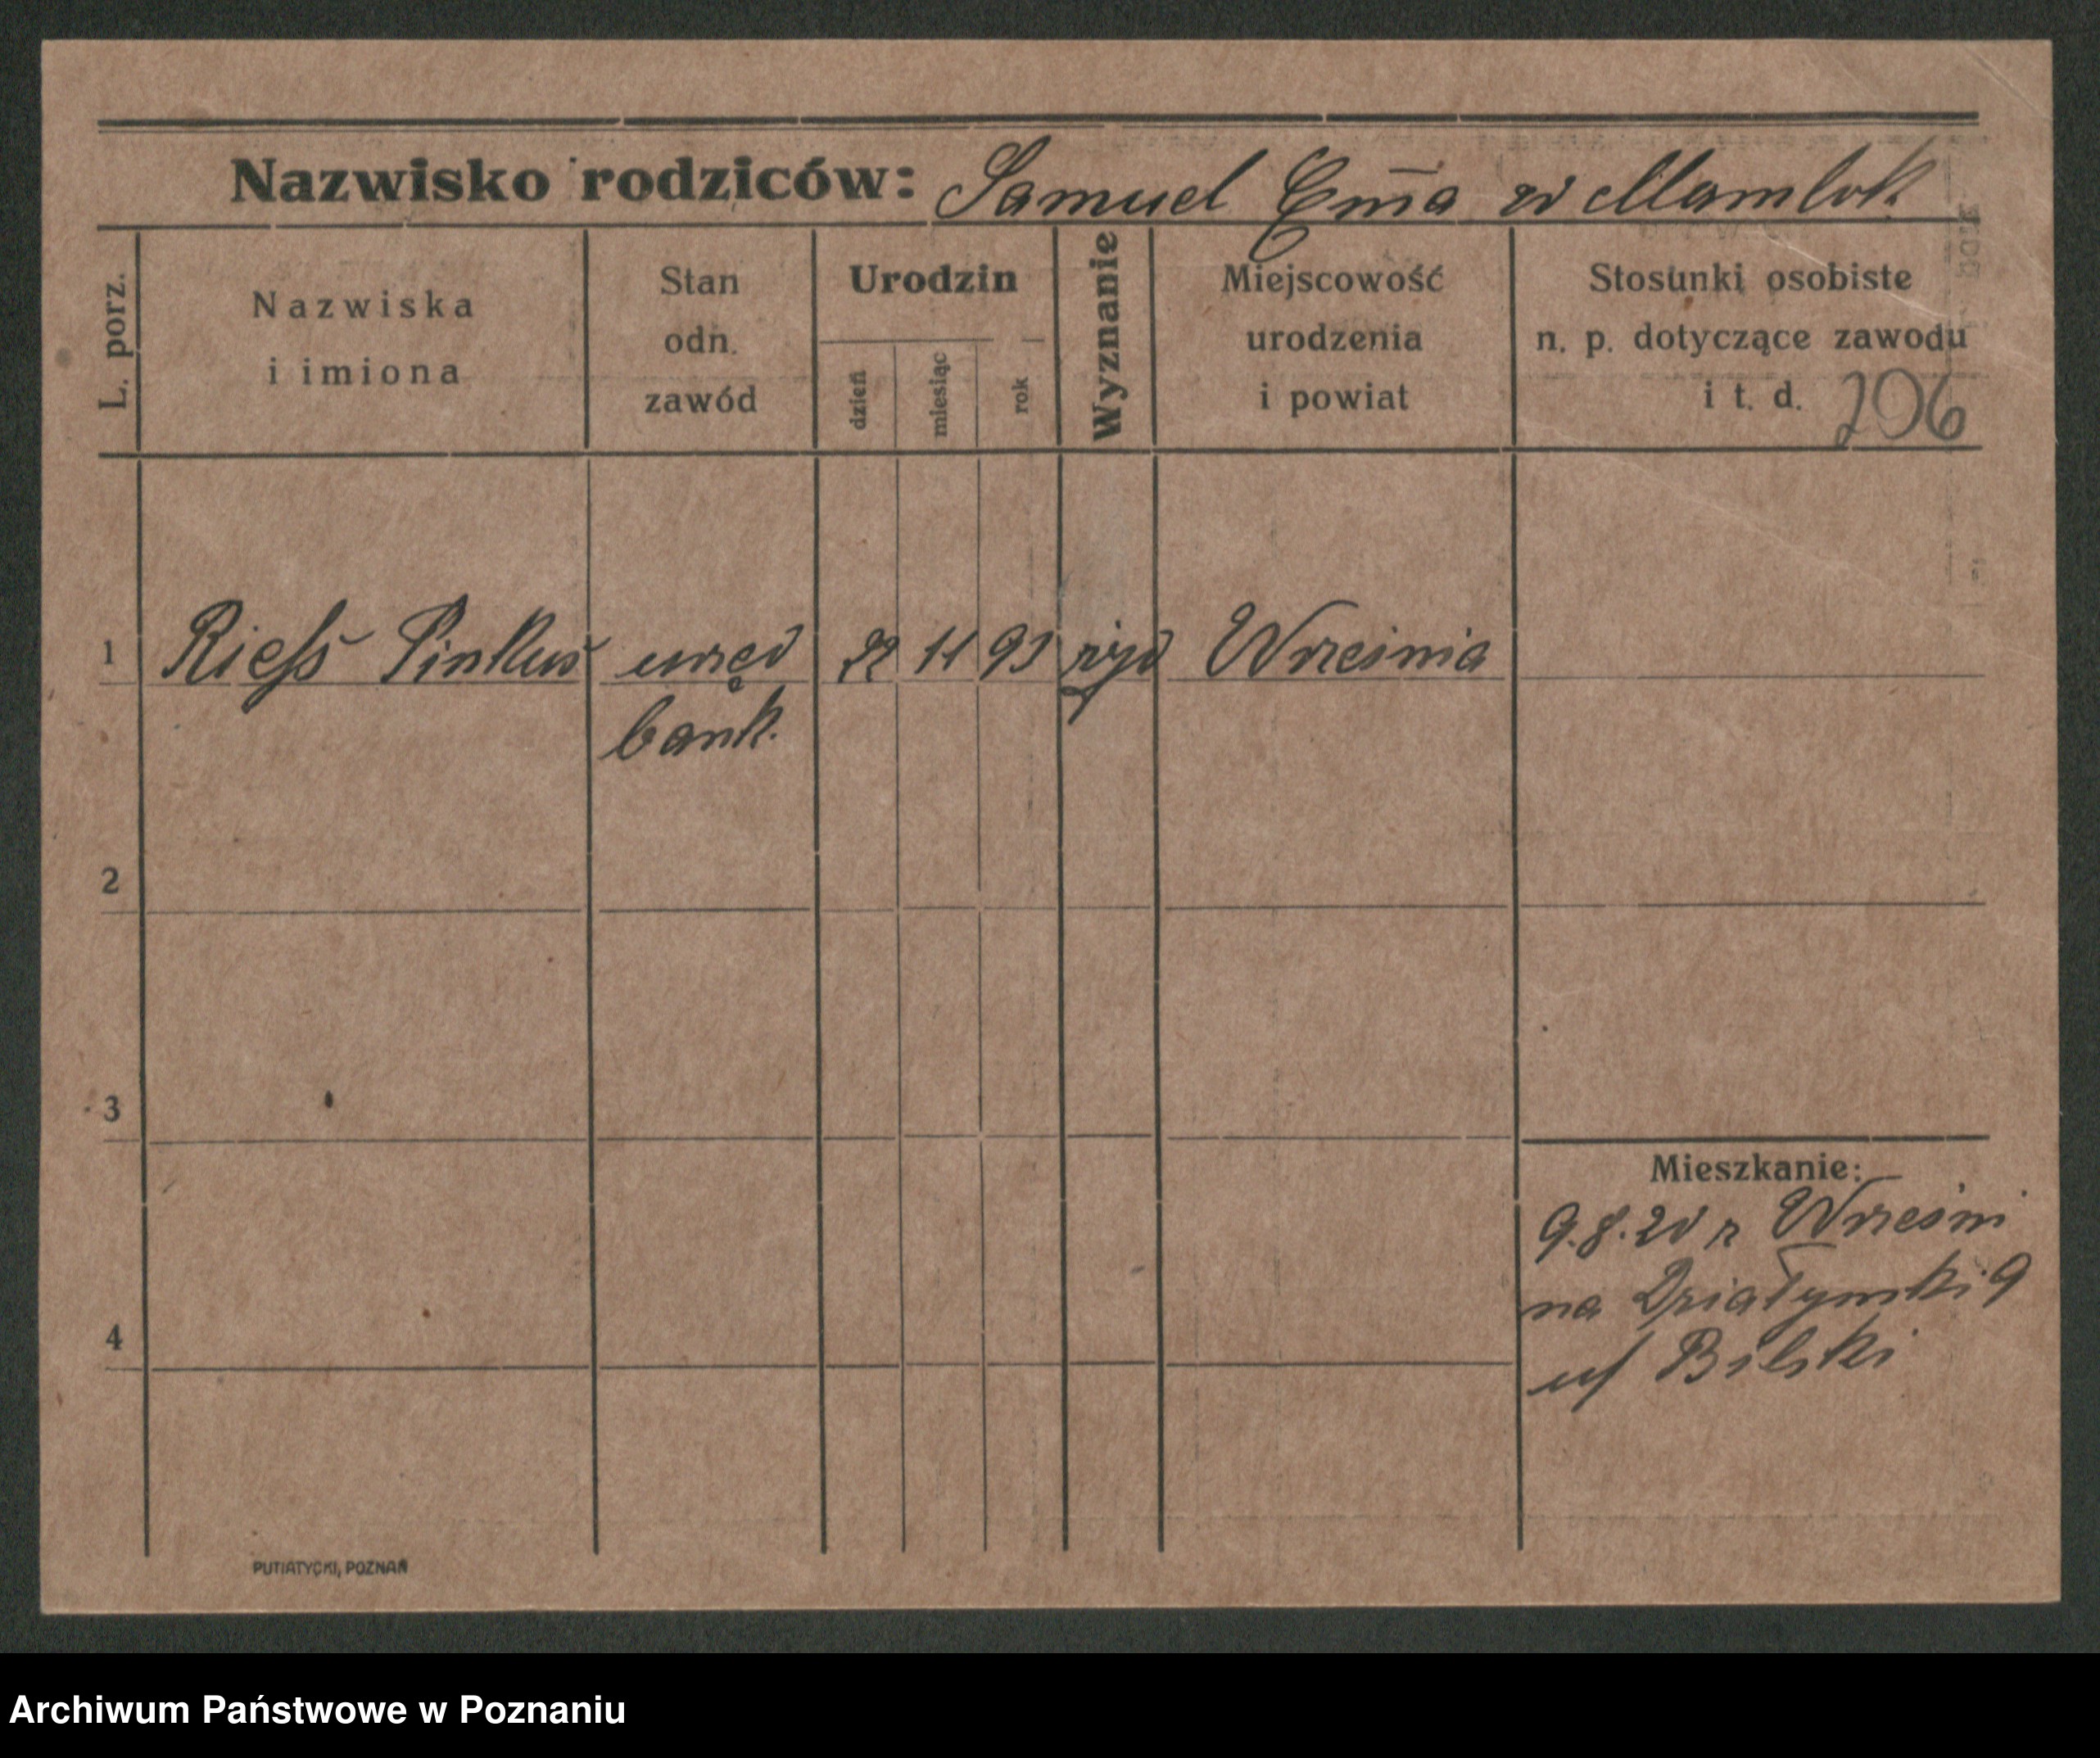 Nazwisko rodziców: Samuel Em̄a zd Mamlok
L. porz.
Nazwiska
i imiona
Stan
odn.
zawód
Urodzin
dzień
miesiąc
rok
Wyznanie
Miejscowość
urodzenia
i powiat
Stosunki osobiste
n. p. dotyczące zawodu
i t. d. 206
1 Riess Pinkus urzęd 22 11 93 żyd Września
bank.
2
3
4
Mieszkanie:
9.8.20 z Wrześni
na Działyński 9
u/ Bilski
PUTIATYCKI, POZNAŃ
Archiwum Państwowe w Poznaniu